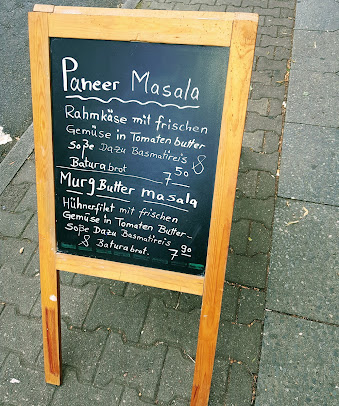 Paneer Masala
Rahmkäse mit frischen
Gemüse in Tomaten butter
Soße Dazu Basmatireis &
Batura brot 7 50
Murg Butter masala
Hühnerfilet mit frischen
Gemüse in Tomaten Butter-
Soße Dazu Basmatireis
& Baturabrot. 7 90